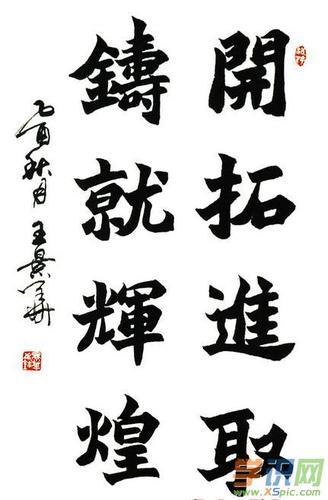 開拓進取
鑄就輝煌
乙酉秋月 王景華
学识网
www.XSpic.com